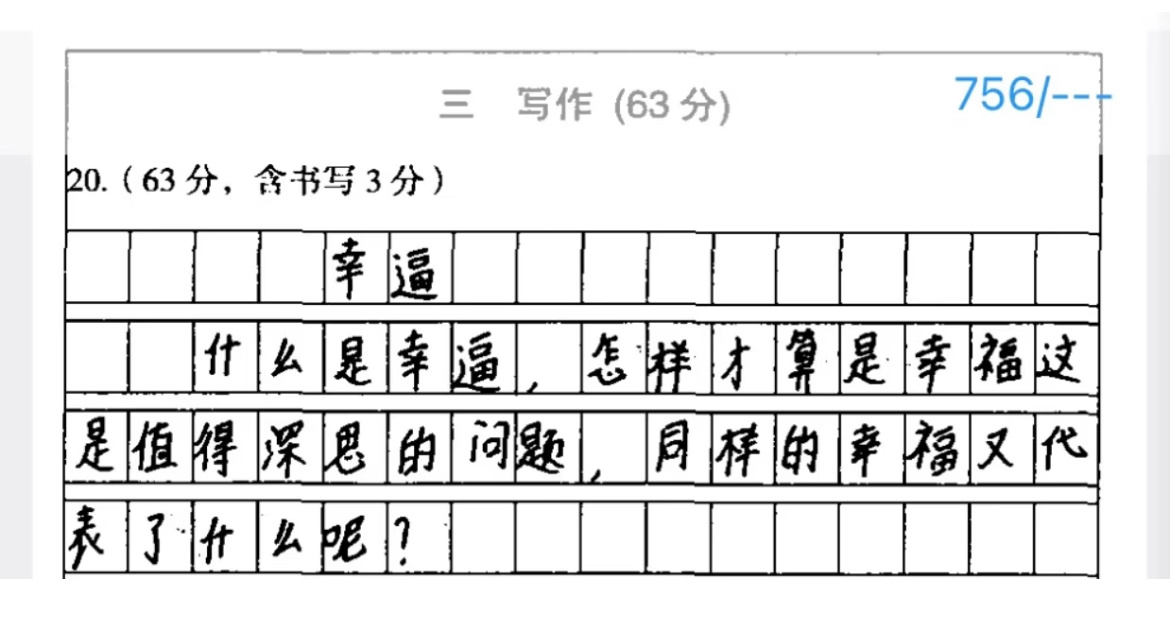 三 写作 (63分)
756/---
20.（63分，含书写3分）
幸逼
什么是幸逼，怎样才算是幸福这
是值得深思的问题，同样的幸福又代
表了什么呢？